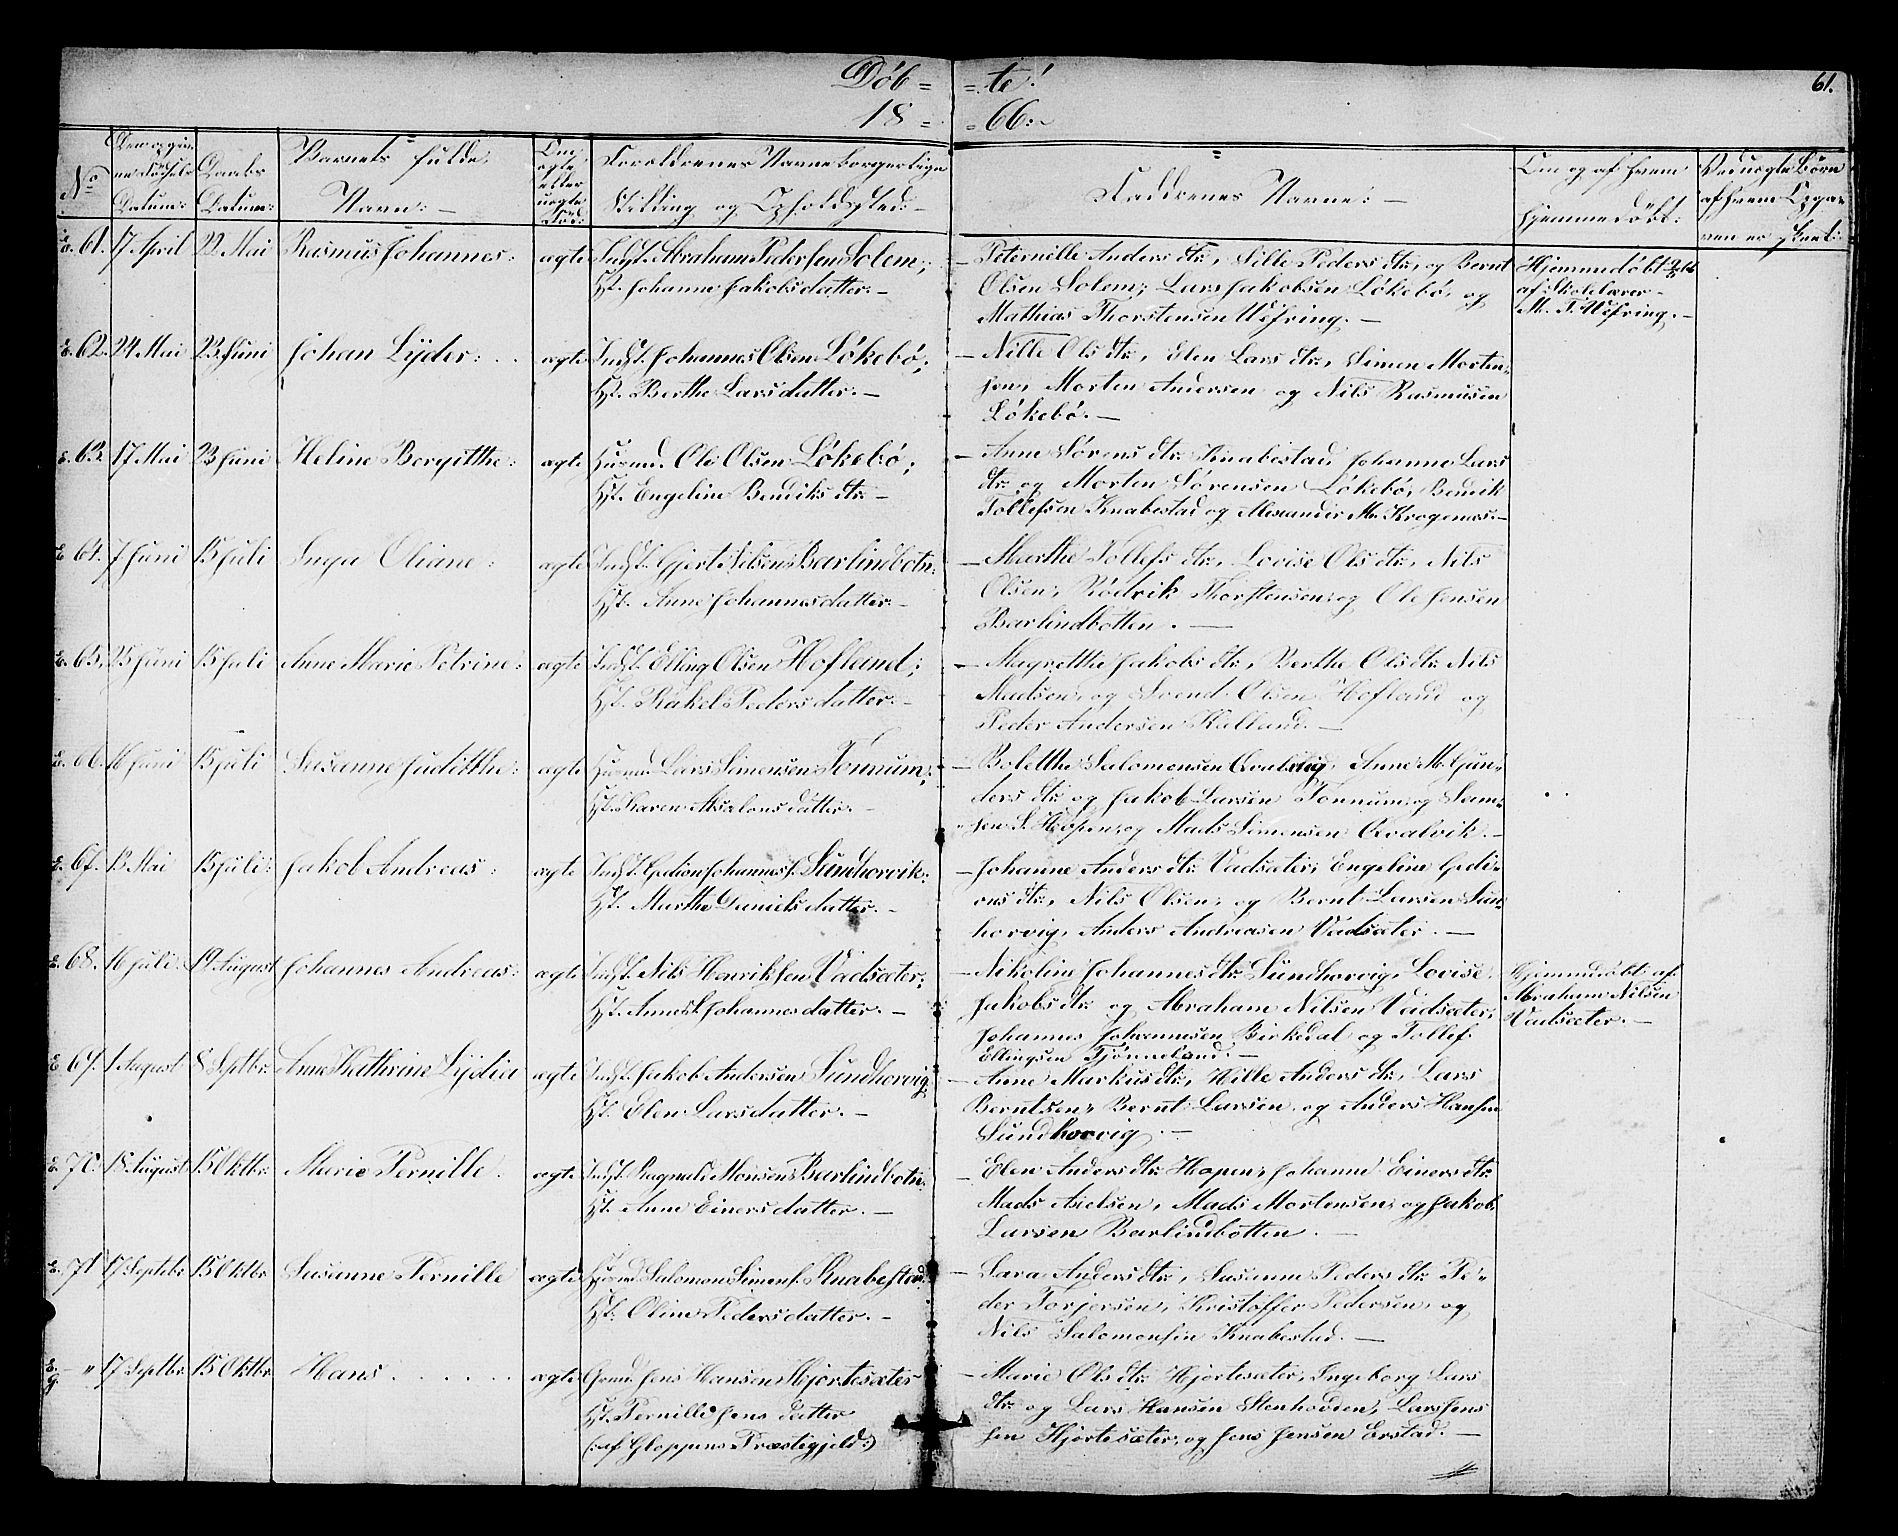 Döb= =te!
18= =66:
61.
No
Datum:
Daabs
Datum:
Barnets fulde
Navn:
Om
ægte
eller
uægte
Forældrenes Navne borgerlige
Stilling og Opholdssted:
Faddrenes Navne:
Om og af hvem
hjemmedöbt:
Ved uægte Börn
af hvem Opga-
ven er skeet:
E. 61. 17 April 22 Mai Rasmus Johannes: ægte Indst. Abraham Pedersen Solem;
Hst. Johanne Jakobsdatter. —
— Peternille Anders dtr., Sille Peders dtr., og Bernt
Olsen Solem; Lars Jakobsen Lökebö, og
Mathias Thorstensen Wefring. —
Hjemmedöbt
af Skolelærer
M. T. Wefring. —
E. 62. 24 Mai 23 Juni Johan Lyder: ægte Indst. Johannes Olsen Lökebö;
Hst. Berthe Larsdatter. —
— Nille Ols dtr., Elen Lars dtr., Simen Morten-
sen, Morten Andersen og Nils Rasmusen
Lökebö. —
E. 63. 17 Mai 23 Juni Heline Bergitthe: ægte Huusmd. Ole Olsen Lökebö;
Hst. Engeline Bendiks dtr. —
— Anne Sörens dtr. Knabestad, Johanne Lars
dtr. og Morten Sörensen Lökebö, Bendik
Tollefsen Knabestad og Alexander M. Krogenæs. —
E. 64. 7 Juni 15 Juli Inga Oliane: ægte Indst. Gjert Nilsen Barlindbotn:
Hst. Anne Johannesdatter. —
— Marthe Tollefs dtr., Lovise Ols dtr., Nils
Olsen, Rödvik Thorstensen, og Ole Jensen
Barlindbotten. —
E. 65. 23 Juni 15 Juli Anne Marie Petrine: ægte Indst. Elling Olsen Hofland;
Hst. Rakel Pedersdatter. —
— Magretthe Jakobs dtr., Berthe Ols dtr. Nils
Madsen, og Svend Olsen Hofland og
Peder Andersen Kalland. —
E. 66. 16 Juni 15 Juli Susanne Juditthe: ægte Huusmd. Lars Simensen Tonnum;
Hst. Karen Absalonsdatter. —
— Bolette Salomonsen Qvalvig, Anne M. Gun-
ders dtr. og Jakob Larsen Tonnum, og Sam-
sen S. Hopen, og Mads Simensen Qvalvik. —
E. 67. 13 Mai 15 Juli: Jakob Andreas: ægte Indst. Gedion Johanness. Sundhorvik:
Hst. Marthe Danielsdatter. —
— Johanne Anders dtr. Vadsæter, Engeline Gedi-
ons dtr., Nils Olsen, og Bernt Larsen Sun-
horvig, Anders Andreasen Vadsæter. —
E. 68. 16 Juli 19 August Johannes Andreas: ægte Indst. Nils Henriksen Vadsæter;
Hst. Anne Johannesdatter. —
— Nikoline Johannes dtr. Sundhorvig, Lovise
Jakobs dtr. og Abraham Nilsen Vadsæter,
Johannes Johannesen Birkedal og Tollef
Ellingsen Tjönneland. —
Hjemmedöbt af
Abraham Nilsen
Vadsæter. —
E. 69. 1 August 8 Septbr. Anne Kathrine Lydia ægte Indst. Jakob Andersen Sundhorvig
Hst. Elen Larsdatter. —
— Anne Markus dtr., Nille Anders dtr., Lars
Berntsen, Bernt Larsen, og Anders Hansen
Sundhorvig. —
E. 70. 18 August 15 Oktbr. Marie Pernille. ægte Indst. Ragnald Monsen Barlindbotn:
Hst. Anne Einersdatter. —
— Elen Anders dtr. Hopen, Johanne Einers dtr.
Mads Axelsen, Mads Mortensen, og Jakob
Larsen Barlindbotten. —
E. 71 17 Septbr. 15 Oktbr. Susanne Pernille ægte Huusmd. Salomon Simens. Knabestad:
Hst. Oline Pedersdatter. —
— Sara Anders dtr., Susanne Peders dtr. Pe-
der Torjersen, Kristoffer Pedersen, og
Nils Salomonsen Knabestad. —
E. g. — " 17 Septbr. 15 Oktbr. Hans . . . . . . ægte Grmd. Jens Hansen Hjortesæter
Hst. Pernille Jensdatter
(: af Gloppens Præstegjeld :)
— Marie Ols dtr. Hjortesæter, Ingeborg Lars
dtr. og Lars Hansen Stenhovden, Lars Jens
sen Hjortesæter, og Jens Jensen Erstad. —